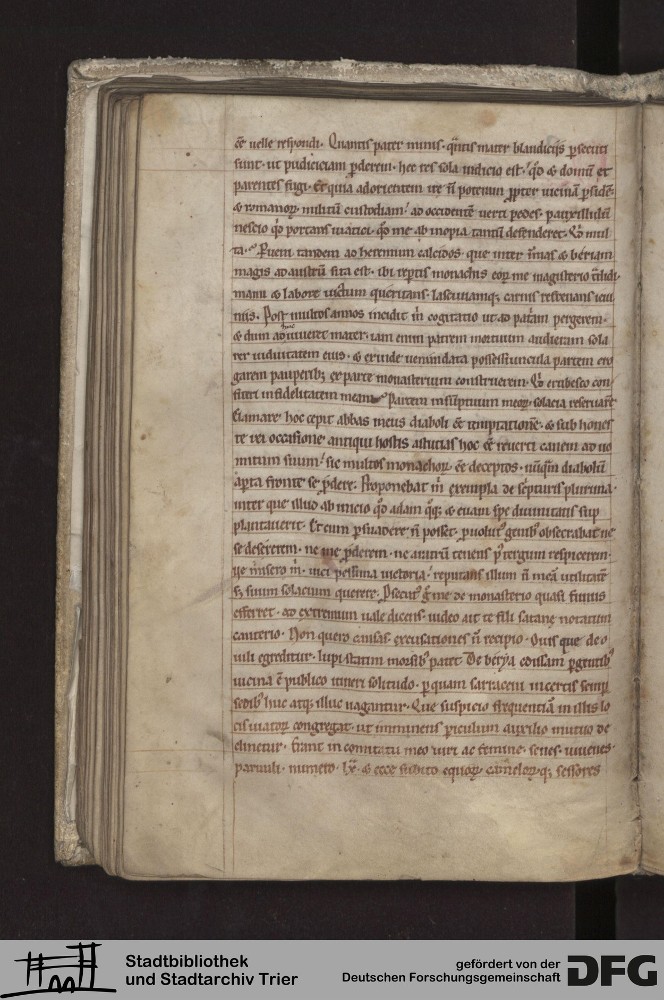 ēe uelle respondi. Quantis pater minis. q̄ntis mater blandicijs ꝑsecuti
sunt. ut pudiciciam ꝑderem. hec res sola iudicio est. qd̄ & domū et
parentes fugi. Et quia ad orientem ire n̄ poteram ꝓpter uicinā ꝑsidē.
& romanoꝝ militū custodiam. ad occidentē uerti pedes. pauxillulū
nescio qd̄ portans uiatici. qd̄ me ab inopia tantū defenderet. Qd̄ mul
ta. Perueni tandem ad heremum calcidos. que inter īmas & beriam
magis ad austrū sita est. ibi reptis monachis eoꝝ me magisterio t̄didi.
manu & labore uictum queritans. lasciuiamqꝫ carnis refrenans ieiu
niis. Post multos annos incidit m̄ cogitatio ut ad patriam pergerem.
& dum adhuc uiueret mater. iam enim patrem mortuum audieram sola
rer uiduitatem eius. & exinde uenundata possessiuncula partem ero
garem pauperibꝫ ex parte monasterium construerem. Qd̄ erubesco con
fiteri infidelitatem meam. Partem in sūptuum meoꝝ solacia reseruarē
Clamare hoc cepit abbas meus diaboli ēe temptationē. & sub hones
te rei occasione antiqui hostis astucias hoc ēe reuerti canem ad uo
mitum suum. sic multos monachoꝝ ēe deceptos. nūqm̄ diabolū
aꝑta fronte se ꝓdere. Proponebat m̄ exempla de sc̄pturis plurima.
inter que illud ab inicio qd̄ adam qꝫ & euam spe diuinitatis sup
plantauerit. Et cum ꝑsuadere n̄ posset. ꝓuolut᷒ genibꝫ obsecrabat ne
se desererem. ne me ꝑderem. ne aratrū tenens p᷒ tergum respicerem.
Ue misero m̄. uici pessima uictoria. reputans illum n̄ meā utilitatē
sꝫ suum solacium querere. Psecut᷒ g̊ me de monasterio quasi funus
efferret. ad extremum uale dicens. uideo ait te fili satane notatum
cauterio. Non quero causas. excusationes n̄ recipio. Ouis que de o
uili egreditur. lupi statim morsibꝫ patet. De berya edissam ꝑgentibꝫ
uicina ē publico itineri solitudo. ꝑ quam sarraceni incertis semꝑ
sedibꝫ huc atqꝫ illuc uagantur. Que suspicio frequentiā in illis lo
cis uiatoꝝ congregat. ut imminens ꝑiculum auxilio mutuo de
clinetur. Erant in comitatu meo uiri ac femine. senes. iuuenes.
paruuli. numero. lxx. & ecce subito equoꝝ cameloꝝ qꝫ sessores
Stadtbibliothek
und Stadtarchiv Trier
gefördert von der
Deutschen Forschungsgemeinschaft
DFG